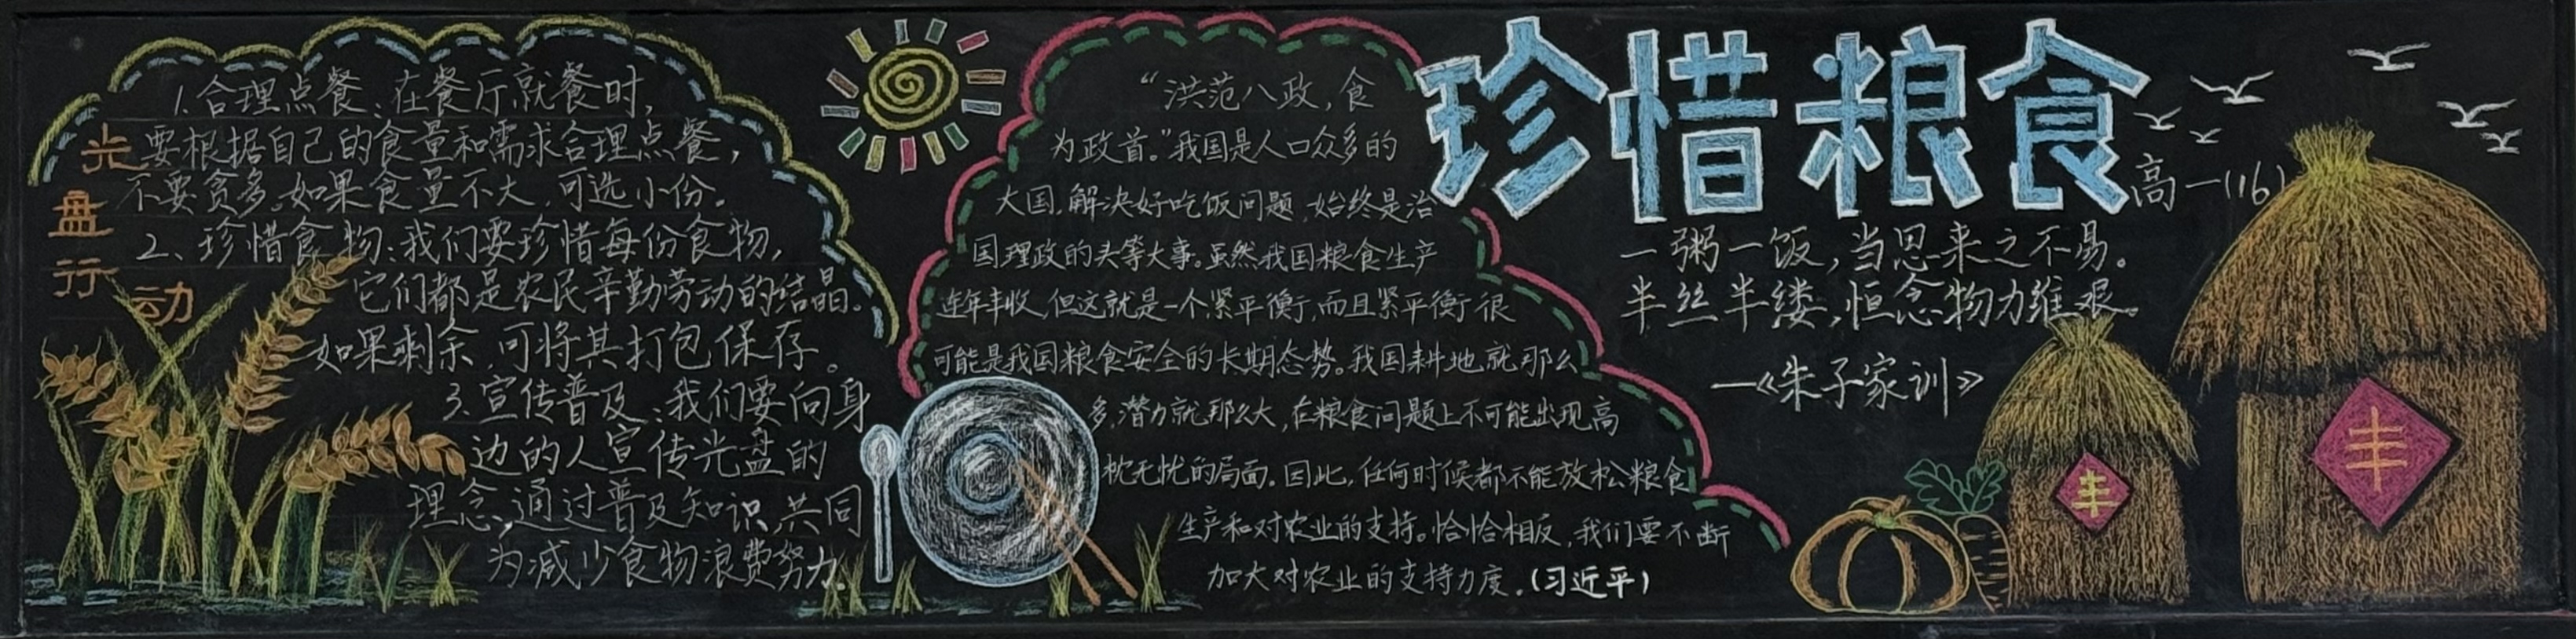 光盘行动
1.合理点餐:在餐厅就餐时,
要根据自己的食量和需求合理点餐,
不要贪多。如果食量不大,可选小份。
2、珍惜食物:我们要珍惜每份食物,
它们都是农民辛勤劳动的结晶。
如果剩余,可将其打包保存。
3.宣传普及:我们要向身
边的人宣传光盘的
理念,通过普及知识,共同
为减少食物浪费努力。
“洪范八政,食
为政首。”我国是人口众多的
大国,解决好吃饭问题,始终是治
国理政的头等大事。虽然我国粮食生产
连年丰收,但这就是一个紧平衡,而且紧平衡很
可能是我国粮食安全的长期态势。我国耕地就那么
多,潜力就那么大,在粮食问题上不可能出现高
枕无忧的局面。因此,任何时候都不能放松粮食
生产和对农业的支持。恰恰相反,我们要不断
加大对农业的支持力度。(习近平)
珍惜粮食
高一(16)
一粥一饭,当思来之不易。
半丝半缕,恒念物力维艰。
—《朱子家训》
丰
丰